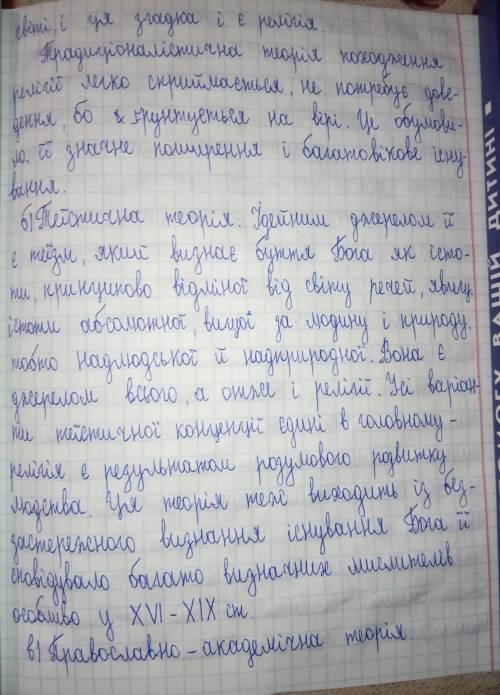 світі, і ця згадка і є релігія.
Традиціоналістична теорія походження
релігії легко сприймається, не потребує дове-
дення, бо ґрунтується на вірі. Це обумови-
ло її значне поширення і багатовікове існу-
вання.
б) Теїстична теорія. Ідейним джерелом її
є теїзм, який визнає буття Бога як істо-
ти, принципово відмінної від світу речей, явищ,
істоти абсолютної, вищої за людину і природу,
тобто надлюдської й надприродної. Вона є
джерелом всього, а отже і релігії. Усі варіан-
ти теїстичної концепції єдині в головному -
релігія є результатом розумового розвитку
людства. Ця теорія теж виходить із без-
застережного визнання існування Бога. Її
сповідувало багато визначних мислителів
особливо у XVI - XIX ст.
в) Православно - академічна теорія.
ВАШІЙ ДИТИНІ